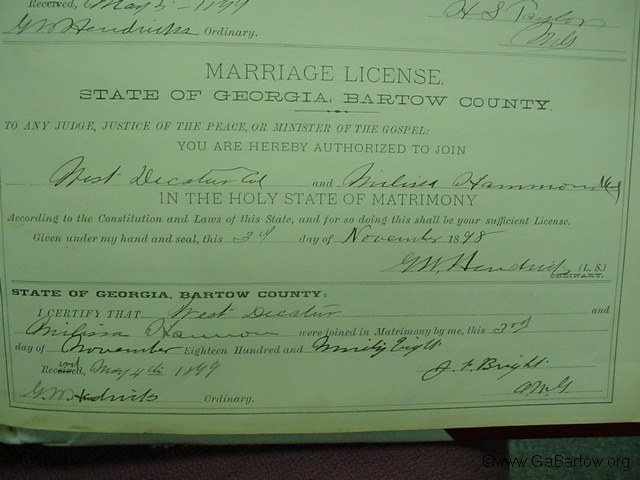 Received, May 5 1899
H S Taylor
G W Hendricks Ordinary.
M.G
MARRIAGE LICENSE.
STATE OF GEORGIA, BARTOW COUNTY.
TO ANY JUDGE, JUSTICE OF THE PEACE, OR MINISTER OF THE GOSPEL:
YOU ARE HEREBY AUTHORIZED TO JOIN
West Decatur Col and Milissa Hammond
IN THE HOLY STATE OF MATRIMONY
According to the Constitution and Laws of this State, and for so doing this shall be your sufficient License.
Given under my hand and seal, this 3d day of November 1898
G W. Hendricks (L. S.)
ORDINARY.
STATE OF GEORGIA, BARTOW COUNTY:
I CERTIFY THAT West Decatur and
Milissa Hannon were joined in Matrimony by me, this 3rd
day of November Eighteen Hundred and Ninety Eight
Received, May 4th 1899 J. F. Bright
G. W. Hendricks Ordinary.
©www.GaBartow.org